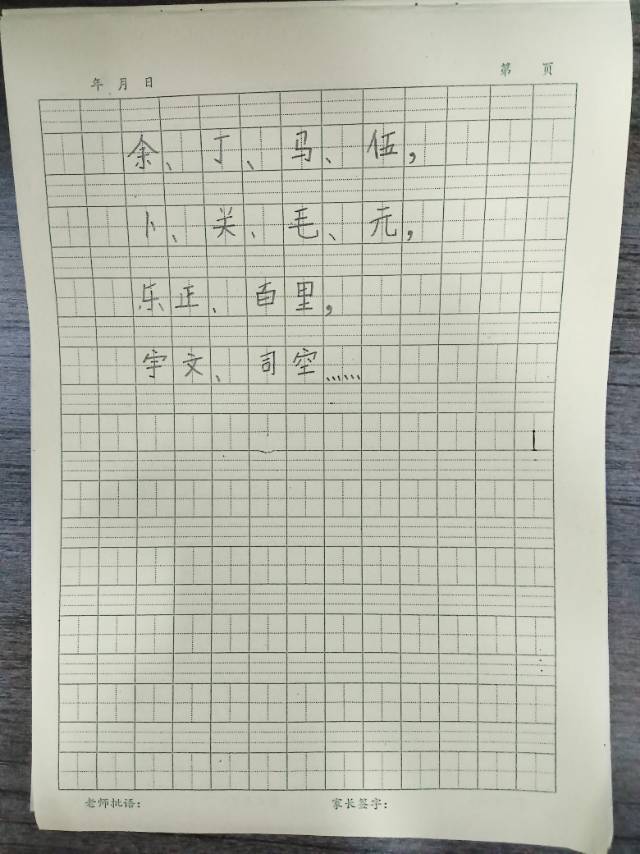 年 月 日
第 页
余、丁、马、伍,
卜、关、毛、元,
乐正、百里,
宇文、司空……
老师批语:
家长签字: